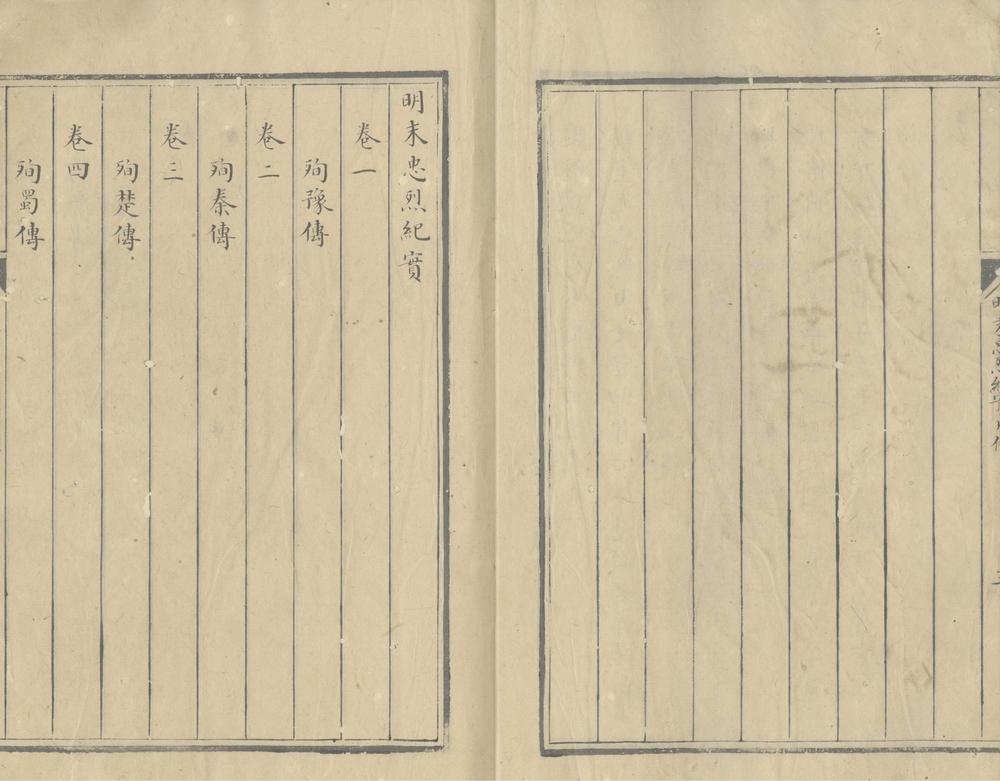 明末忠烈紀實
卷一
殉豫傳
卷二
殉秦傳
卷三
殉楚傳
卷四
殉蜀傳